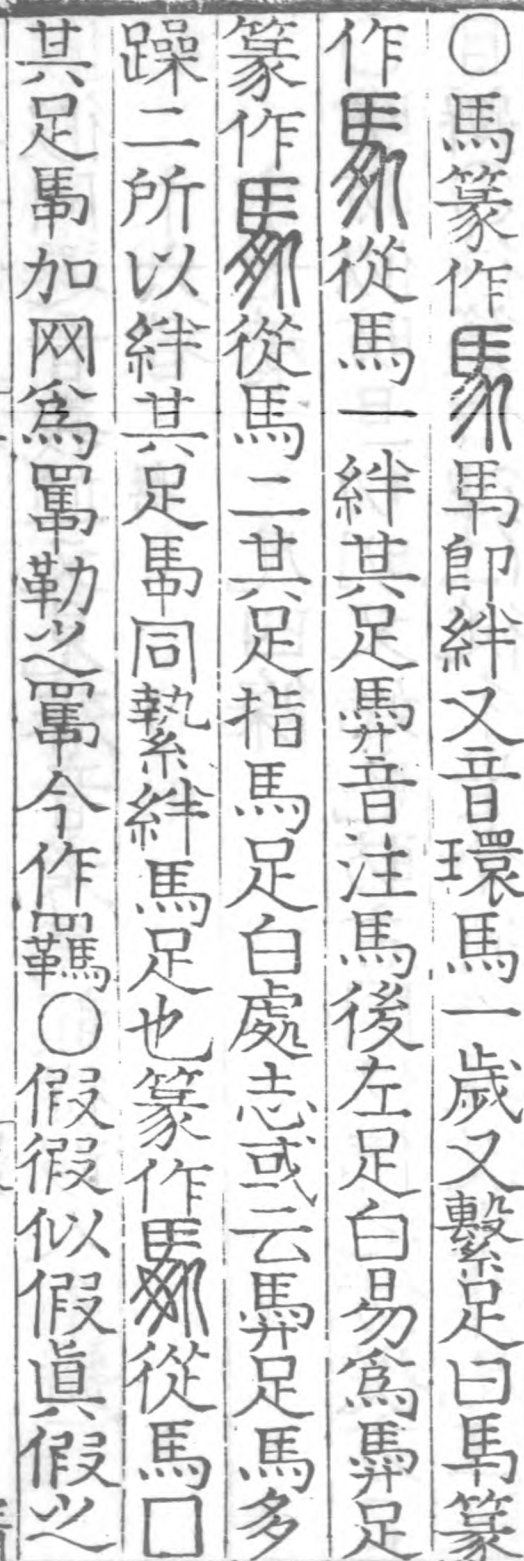 ○馬篆作𢒠馬即絆又音環馬一歲又繫足曰馬篆
作從馬一絆其足馵音注馬後左足白易為馵足
篆作從馬二其足指馬足白處志或云馵足馬多
躁二所以絆其足馽同縶絆馬足也篆作從馬囗
其足馽加网為罵勒之𦌭今作羈○假徦似假眞假之